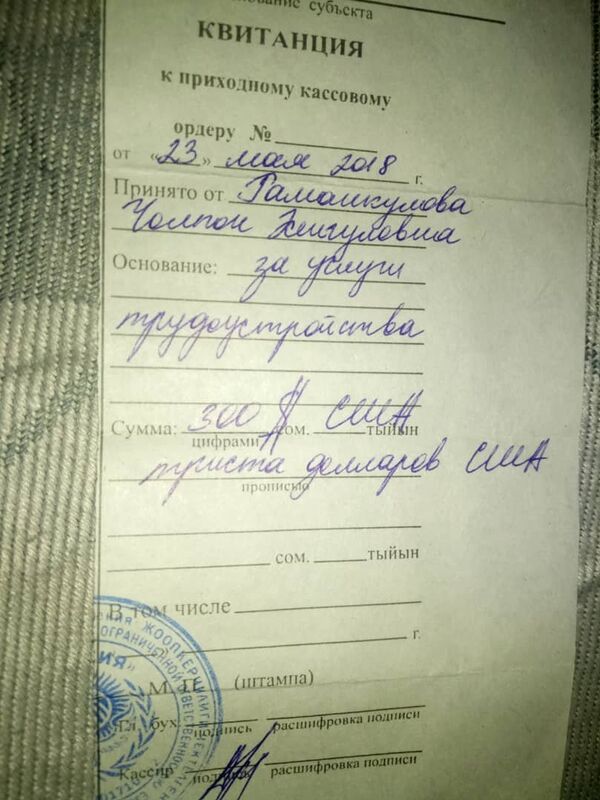 субъекта
КВИТАНЦИЯ
к приходному кассовому
ордеру №
от «23» мая 2018 г.
Принято от Рамашкулова
Чолпон
Основание: за услуги
трудоустройства
Сумма: 300 $ США
сом. тыйын
цифрами
триста долларов США
прописью
сом. тыйын
В том числе
г.
М. П. (штампа)
Гл. бух. подпись расшифровка подписи
Кассир подпись расшифровка подписи